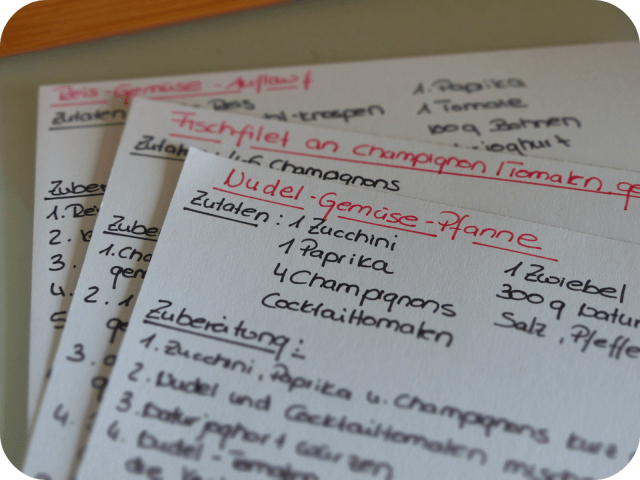 Reis-Gemüse-Auflauf
Zutaten Reis
1 Paprika
1 Tomate
100g Bohnen
Zuber
1. Rei
2.
3.
4.
Fischfilet an Champignon/Tomaten ge
Zutat 4-6 Champignons
Zube
1. Cha
gem
2. 1
ge
3.
4.
Nudel-Gemüse-Pfanne
Zutaten: 1 Zucchini
1 Paprika
4 Champignons
Cocktailtomaten
1 Zwiebel
300g Natur
Salz, Pfeffe
Zubereitung:
1. Zucchini, Paprika u. Champignons kurz
2. Nudel und Cocktailtomaten mische
3. Naturjoghurt würzen
4. Nudel-Tomaten
die